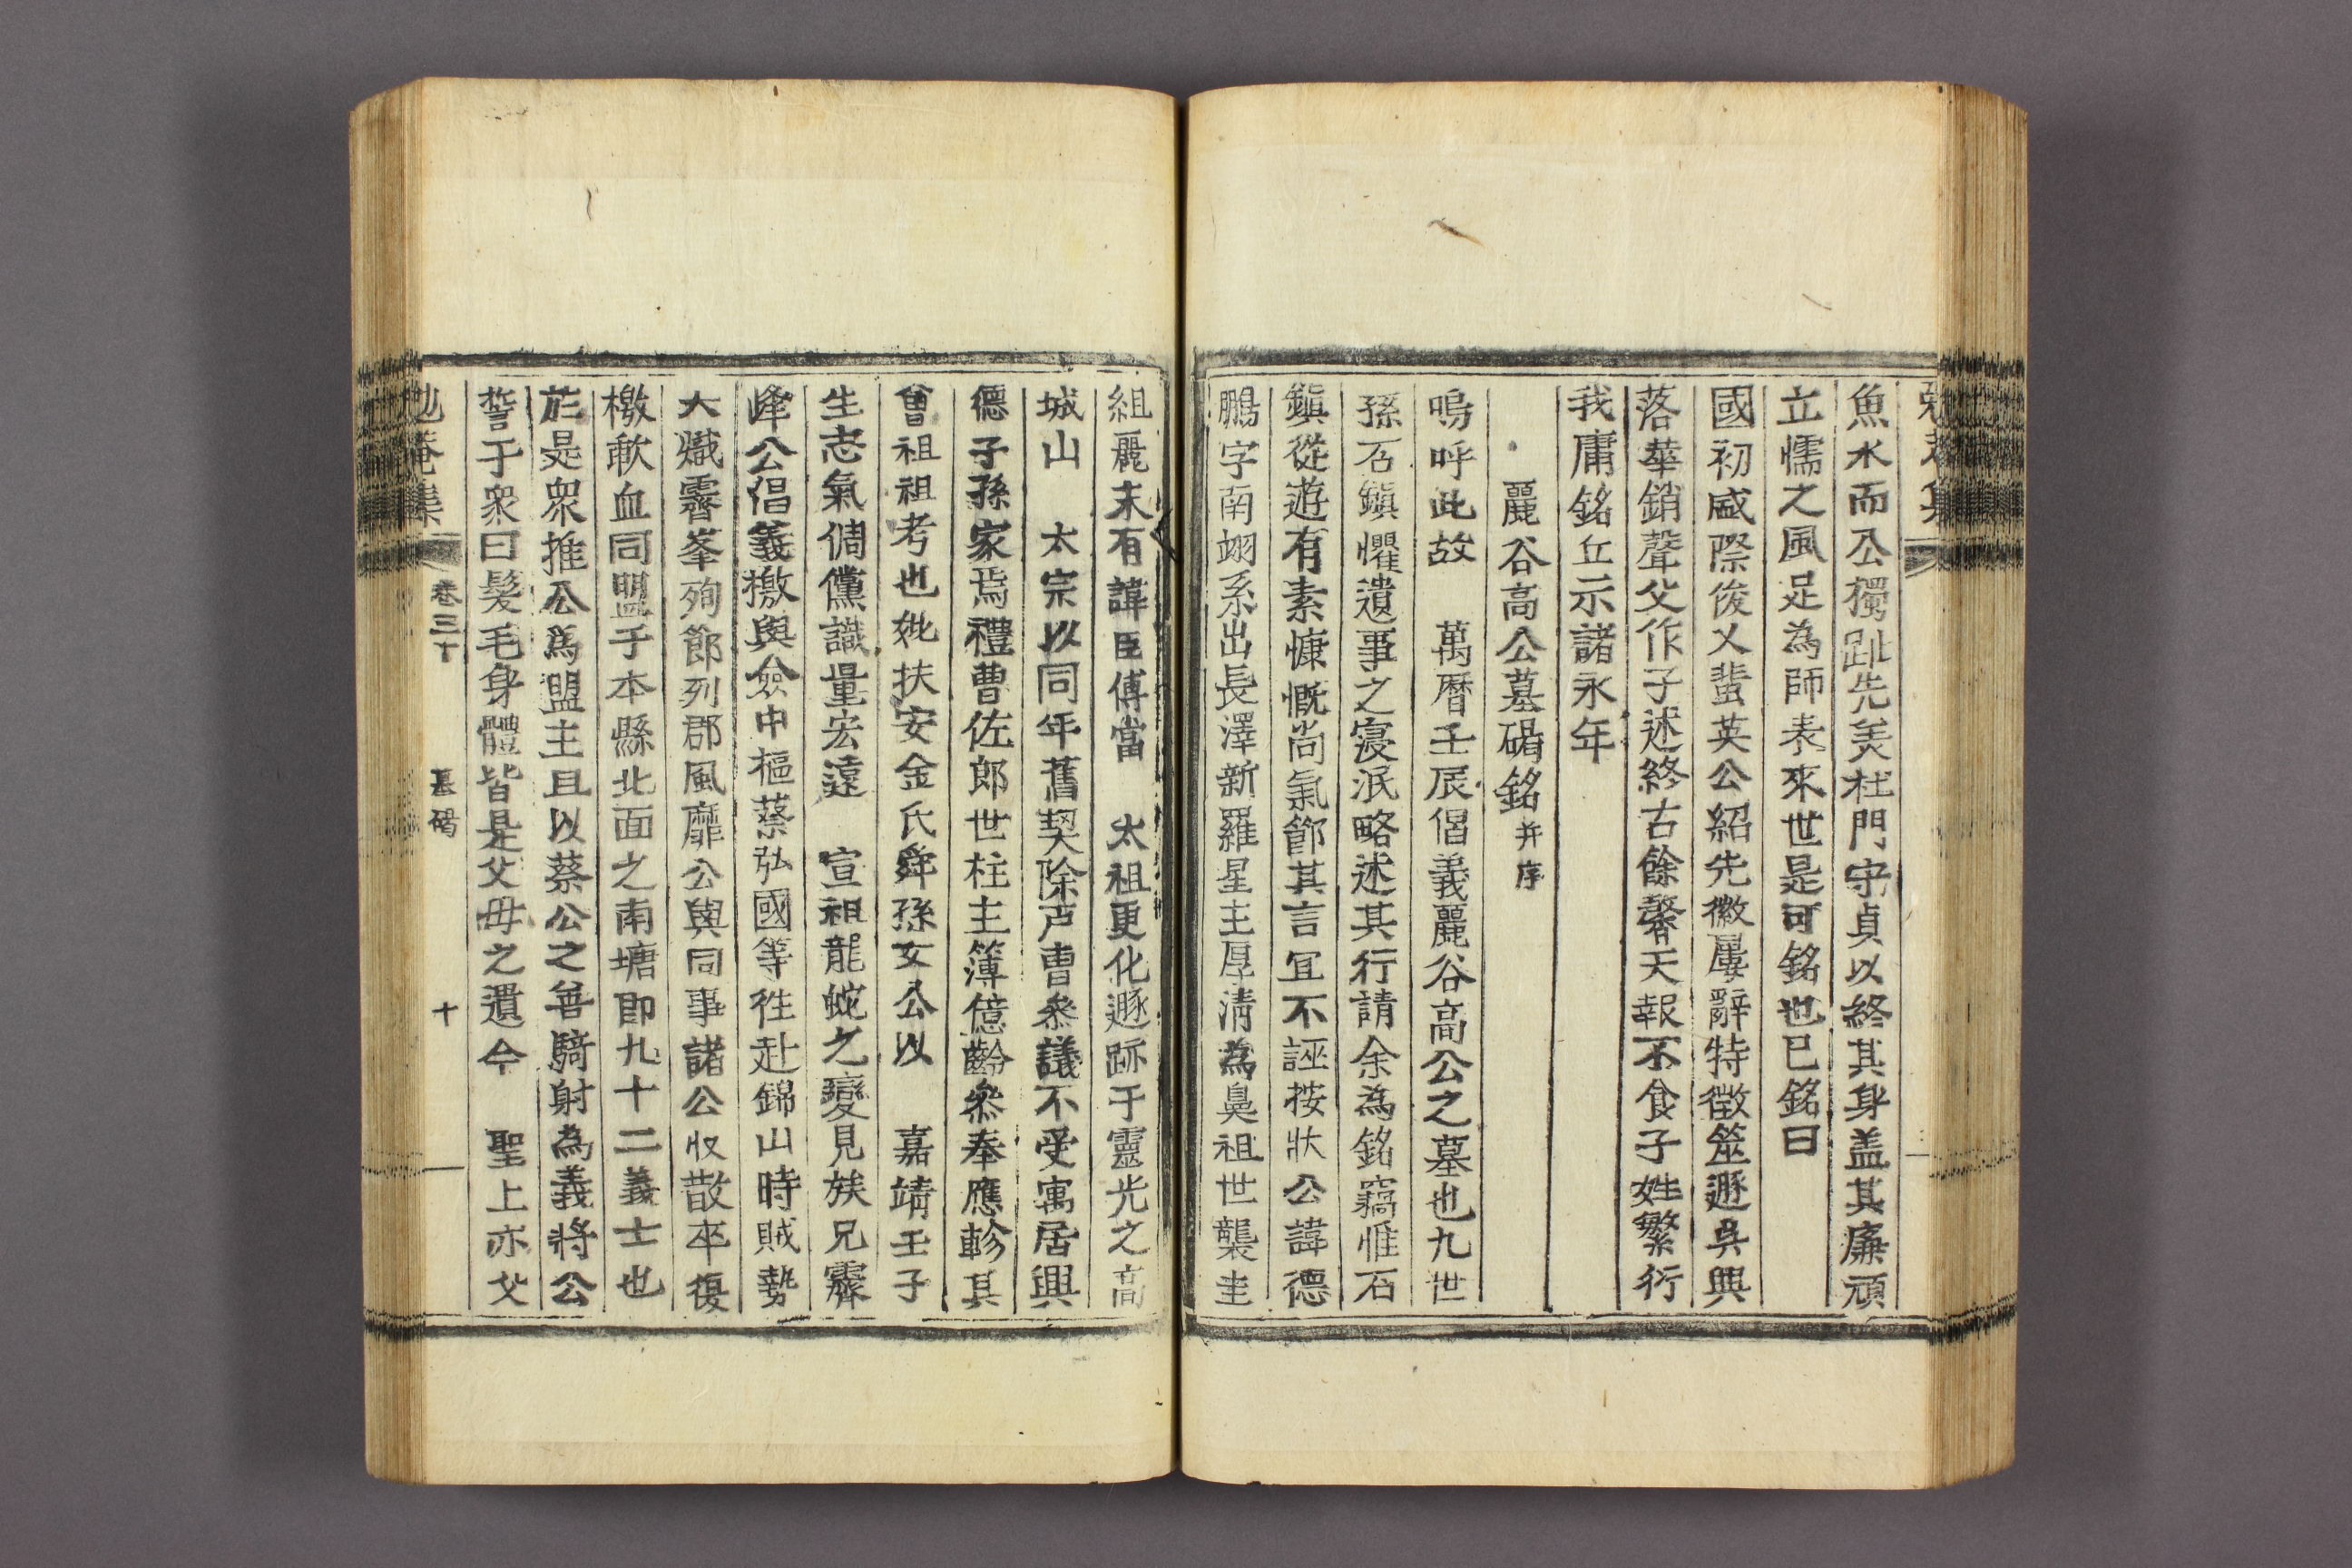 魚水而公獨趾先美杜門守貞以終其身盖其廉頑
立懦之風足為師表來世是可銘也已銘曰
國初盛際俊乂蜚英公紹先徽屢辭特徵筮遯吳興
落華銷聲父作子述終古餘馨天報不食子姓繁衍
我庸銘丘示諸永年
麗谷高公墓碣銘 并序
嗚呼此故 萬曆壬辰倡義麗谷高公之墓也九世
孫石鎭懼遺事之寖泯略述其行請余為銘竊惟石
鎭從遊有素慷慨尚氣節其言冝不誣按狀公諱德
鵬字南翊系出長澤新羅星主厚淸為鼻祖世襲圭
組麗末有諱臣傅當 太祖更化遯跡于靈光之高
城山 太宗以同年舊契除戶曹叅議不受寓居興
德子孫家焉禮曹佐郎世柱主簿億齡叅奉應軫其
曾祖祖考也妣扶安金氏舜孫女公以 嘉靖壬子
生志氣倜儻識量宏遠 宣祖龍蛇之變見族兄霽
峰公倡義檄與僉中樞蔡弘國等徃赴錦山時賊勢
大熾霽峯殉節列郡風靡公與同事諸公收散卒復
檄歃血同盟于本縣北面之南塘即九十二義士也
於是眾推公爲盟主且以蔡公之善騎射為義將公
誓于衆曰髮毛身體皆是父母之遺今 聖上亦父
勉菴集 卷三十 墓碣 十